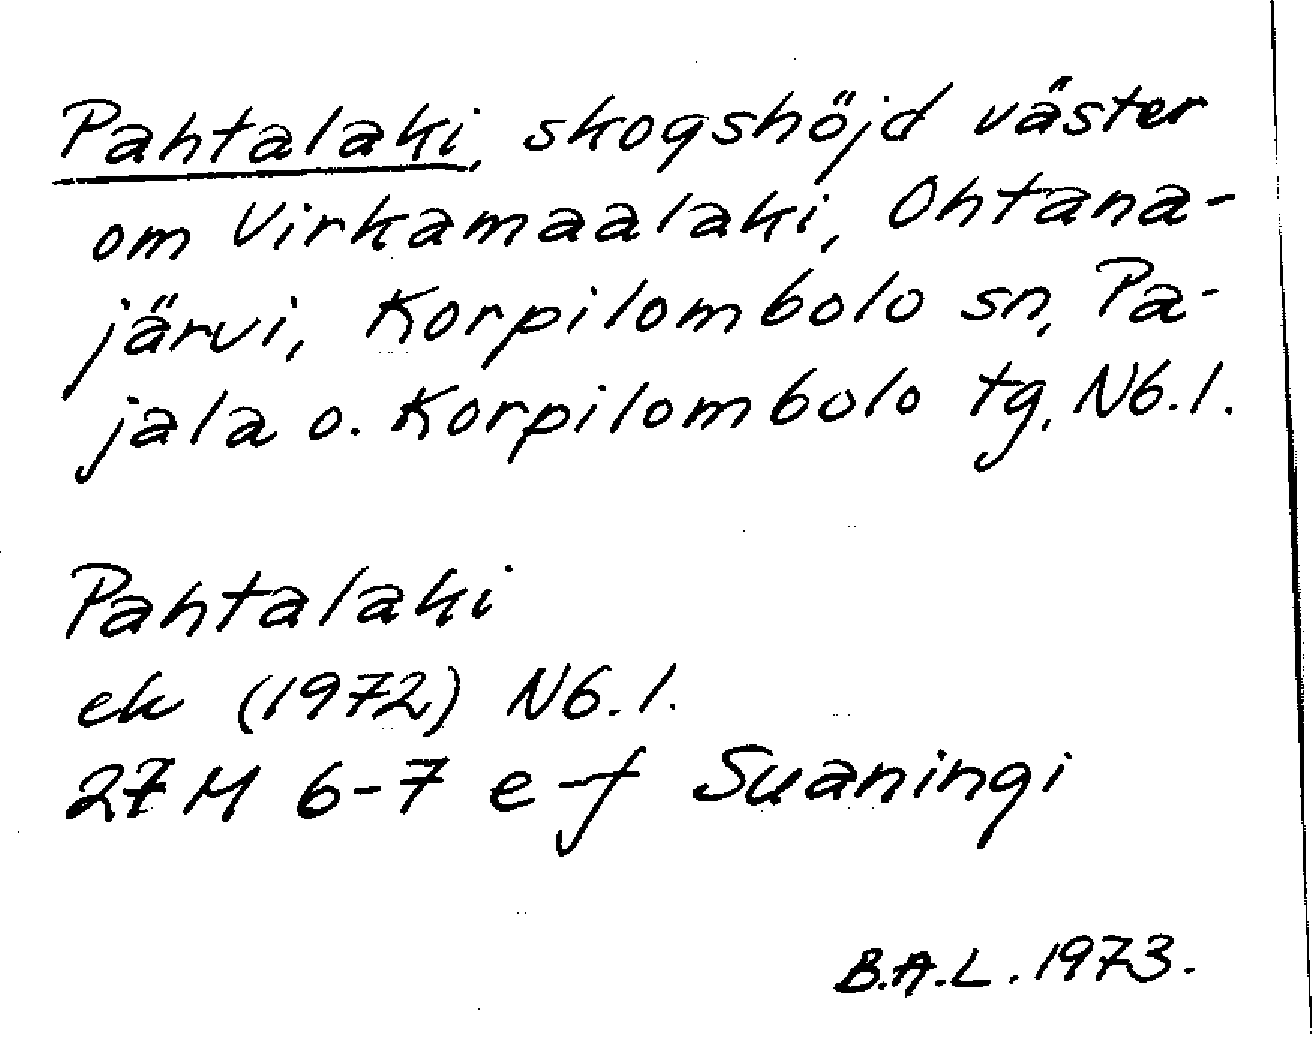 Pahtalaki, skogshöjd väster
om Virkamaalaki, Ohtana-
järvi, Korpilombolo sn, Pa-
jala o. Korpilombolo tg, Nb.l.
Pahtalaki
ek (1972) Nb.l.
27 M 6-7 e-f Suaningi
B.A.L. 1973.